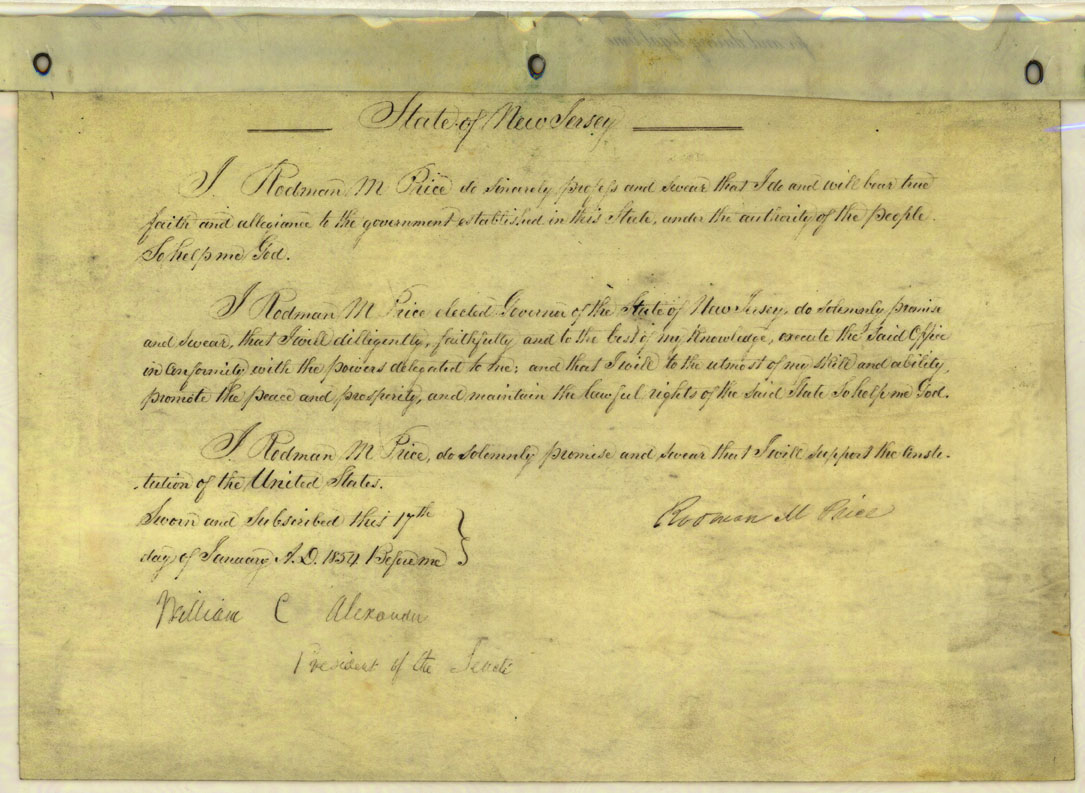 State of New Jersey
I Rodman M Price do sincerely profess and swear that I do and will bear true
faith and allegiance to the government established in this State, under the authority of the people.
So help me God.
I Rodman M Price elected Governor of the State of New Jersey, do solemnly promise
and swear, that I will dilligently, faithfully and to the best of my knowledge, execute the said Office
in conformity with the powers delegated to me; and that I will to the utmost of my skill and ability,
promote the peace and prosperity, and maintain the lawful rights of the said State So help me God.
I Rodman M Price, do solemnly promise and swear that I will support the Consti-
-tution of the United States.
Sworn and Subscribed this 17th
day of January A.D. 1854 Before me
Rodman M Price
William C Alexander
President of the Senate